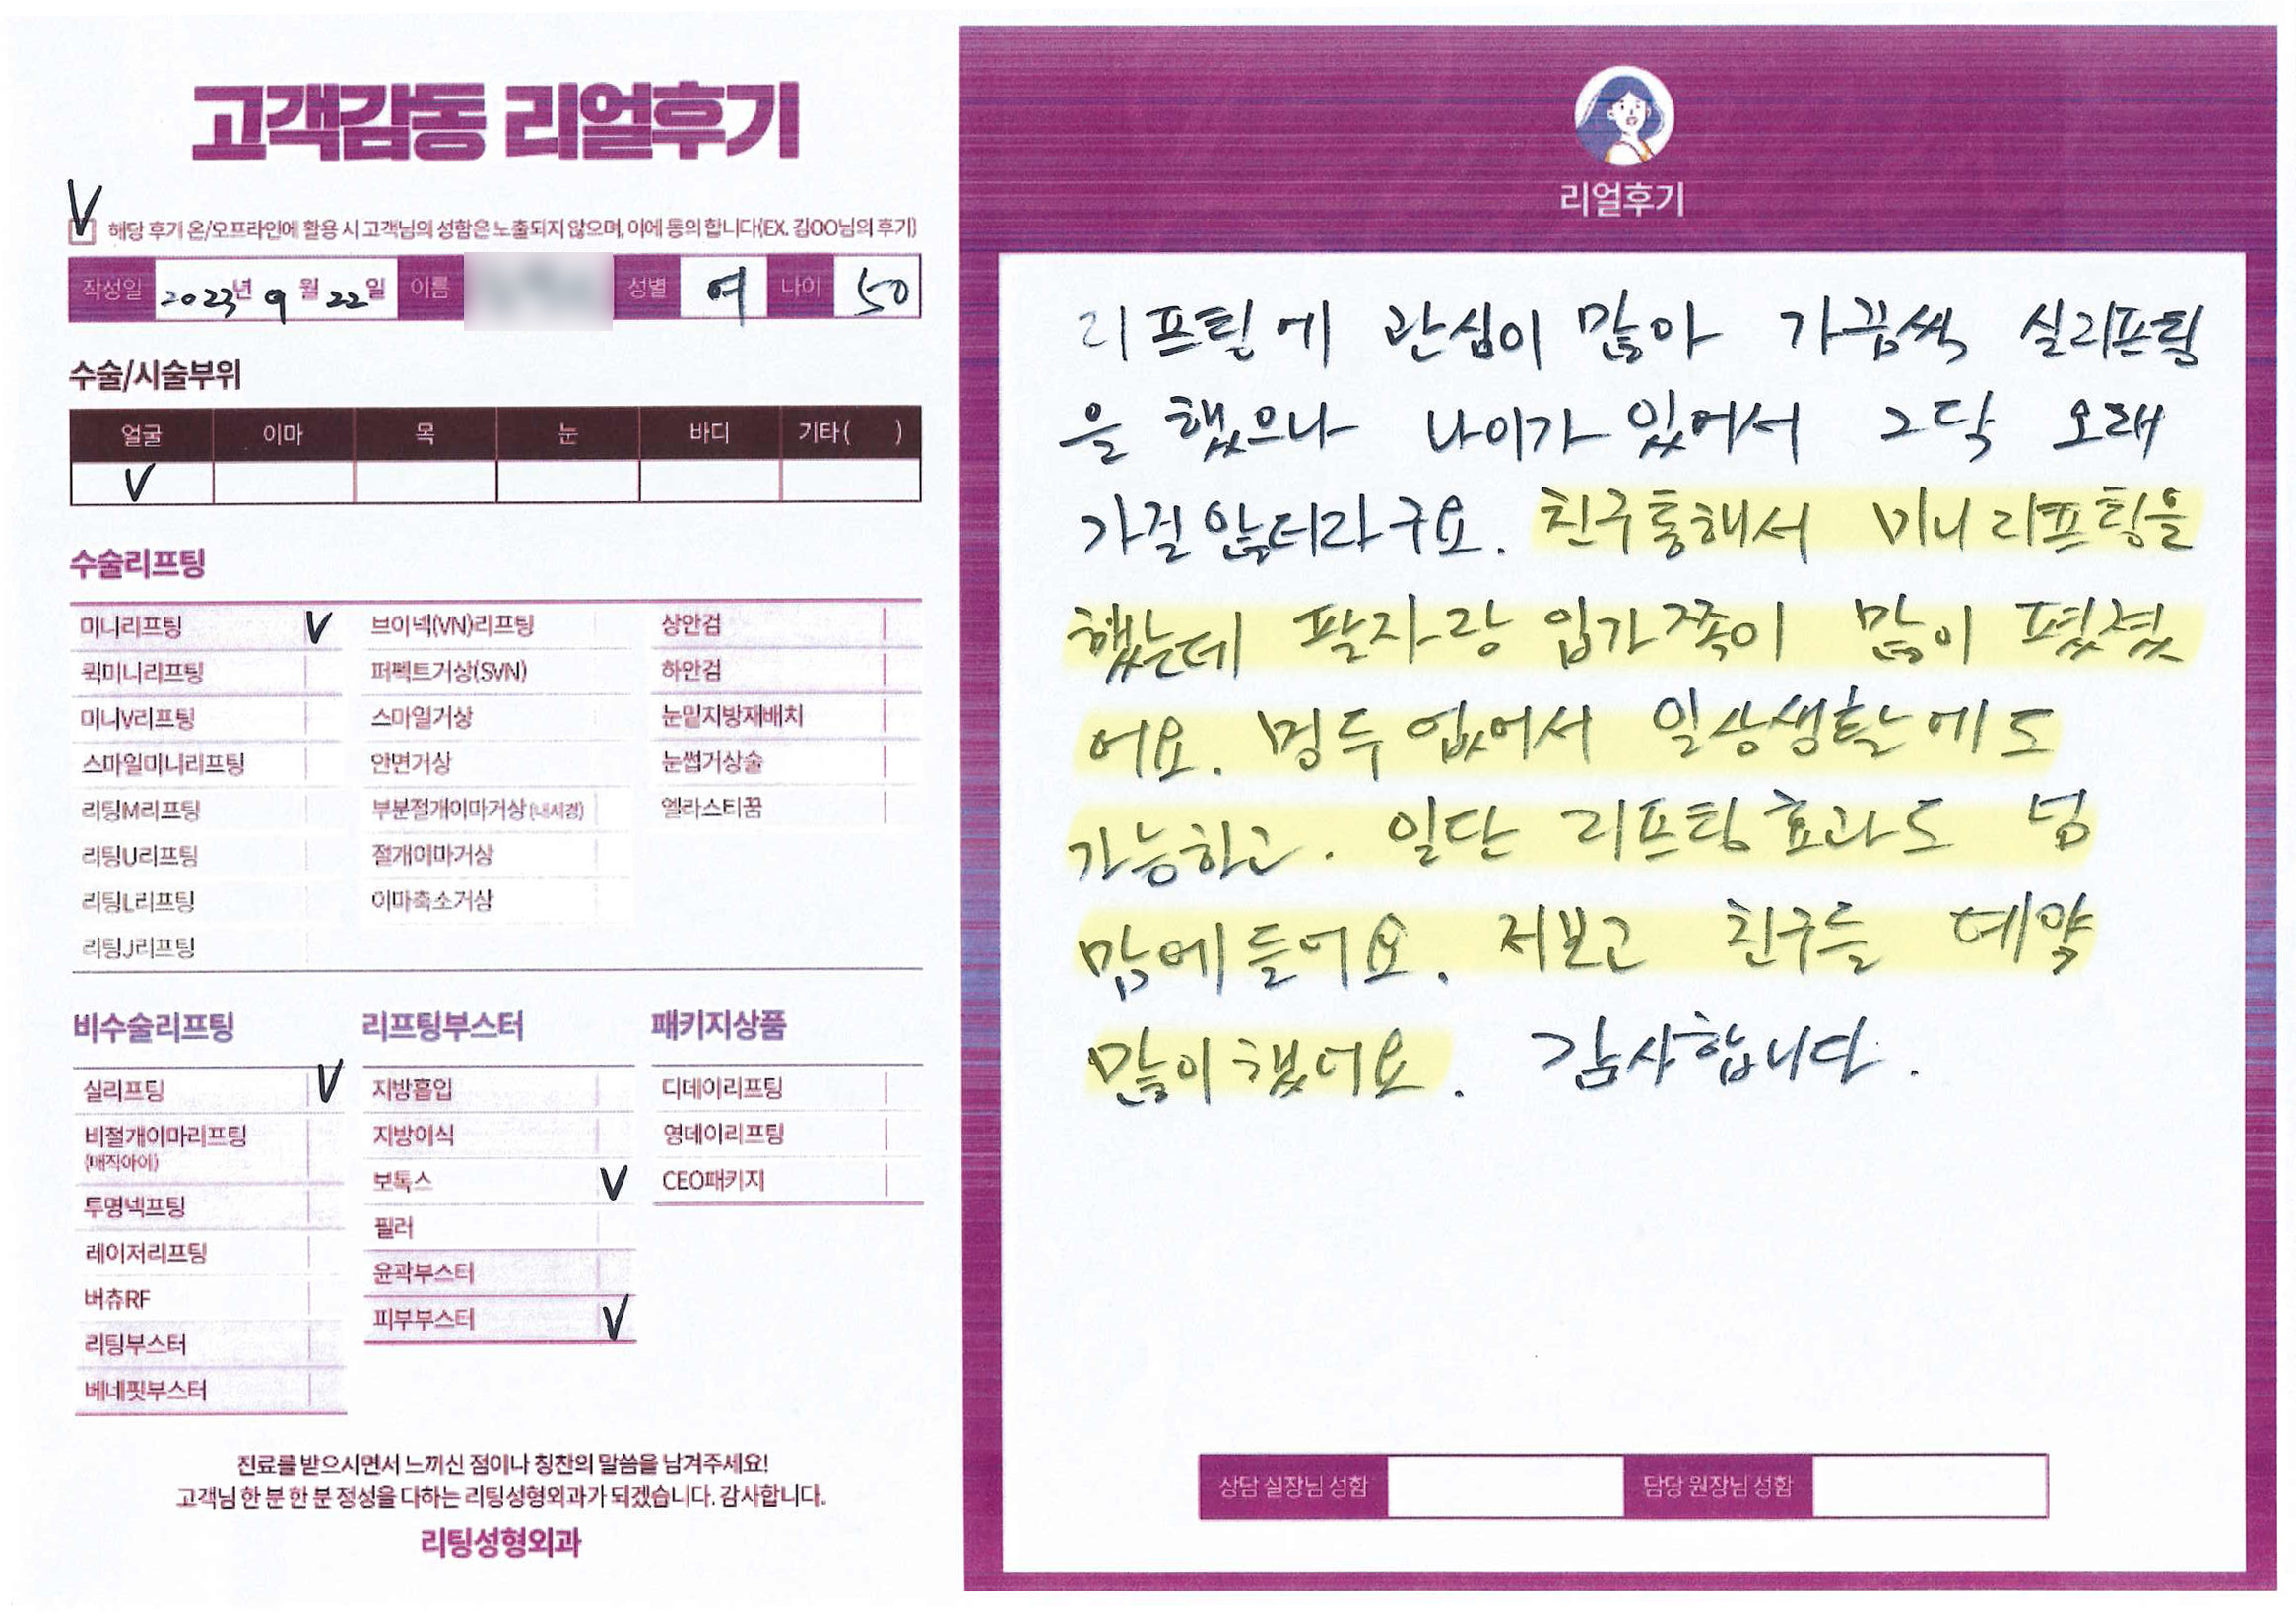 고객감동 리얼후기
V 해당 후기 온/오프라인에 활용 시 고객님의 성함은 노출되지 않으며, 이에 동의 합니다(EX. 김OO님의 후기)
작성일 2023년 9월 22일 이름 성별 여 나이 50
수술/시술부위
얼굴 이마 목 눈 바디 기타( )
V
수술리프팅
미니리프팅 V 브이넥(VN)리프팅 상안검
퀵미니리프팅 퍼펙트거상(SVN) 하안검
미니V리프팅 스마일거상 눈밑지방재배치
스마일미니리프팅 안면거상 눈썹거상술
리팅M리프팅 부분절개이마거상(내시경) 엘라스티꿈
리팅U리프팅 절개이마거상
리팅L리프팅 이마축소거상
리팅J리프팅
비수술리프팅 리프팅부스터 패키지상품
실리프팅 V 지방흡입 디데이리프팅
비절개이마리프팅 지방이식 영데이리프팅
(매직아이)
보톡스 V CEO패키지
투명넥프팅 필러
레이저리프팅 윤곽부스터
버츄RF 피부부스터 V
리팅부스터
베네핏부스터
진료를 받으시면서 느끼신 점이나 칭찬의 말씀을 남겨주세요!
고객님 한 분 한 분 정성을 다하는 리팅성형외과가 되겠습니다. 감사합니다.
리팅성형외과
리얼후기
리프팅에 관심이 많아 가끔씩 실리프팅
을 했으나 나이가 있어서 그닥 오래
가질 않더라구요. 친구통해서 미니리프팅을
했는데 팔자랑 입가쪽이 많이 폈졌
어요. 멍두 없어서 일상생활에도
가능하고. 일단 리프팅효과도 넘
맘에 들어요. 저보고 친구들 예약
많이 했어요. 감사합니다.
상담 실장님 성함 담당 원장님 성함